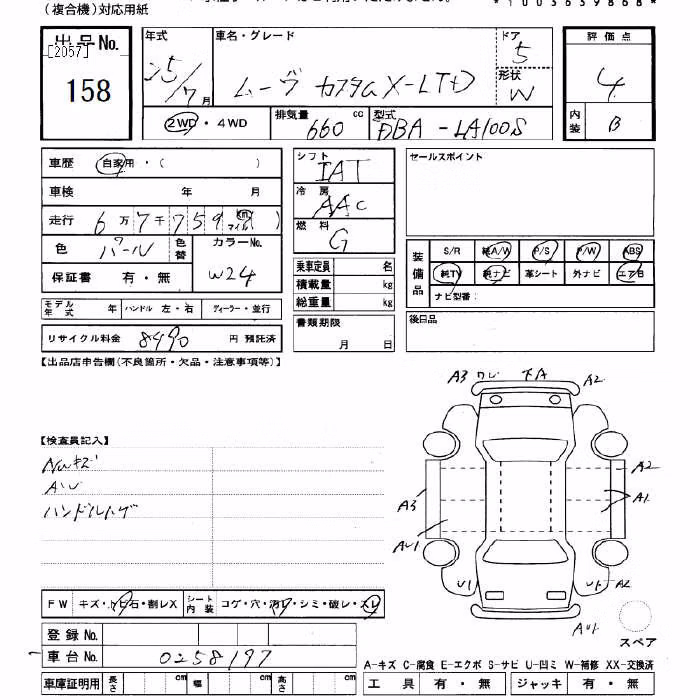 (複合機)対応用紙
*1003639868*
出品No. 年式 車名・グレード ドア 5 評価点
[2057]
158 25/7月 ムーヴ カスタム X-LTD 形状 W 4
2WD・4WD 排気量 660 cc 型式 DBA-LA100S 内装 B
車歴 自家用・( ) シフト IAT セールスポイント
車検 年 月 冷房 AAC
走行 6万7千759 km マイル 燃料 G
色 パール 色替 カラーNo. W24
保証書 有・無
装備品 S/R 純A/W P/S P/W ABS
純TV 純ナビ 革シート 外ナビ エアB
ナビ型番:
乗車定員 名
積載量 kg
総重量 kg
モデル年式 年 ハンドル 左・右 ディーラー・並行
書類期限 月 日
後日品
リサイクル料金 8490 円 預託済
【出品店申告欄(不良箇所・欠品・注意事項等)】
A3 ワレ 下A A2
【検査員記入】
Nuキズ
AW
ハンドルハゲ
A2
A3 A1
AU1
U1 U1 A2
AU1
スペア
FW キズ・トビ石・割レX シート内装 コゲ・穴・汚レ・シミ・破レ・スレ
登録No.
車台No. 0258197
A-キズ C-腐食 E-エクボ S-サビ U-凹ミ W-補修 XX-交換済
車庫証明用 長さ cm 幅 cm 高さ cm 工具 有・無 ジャッキ 有・無